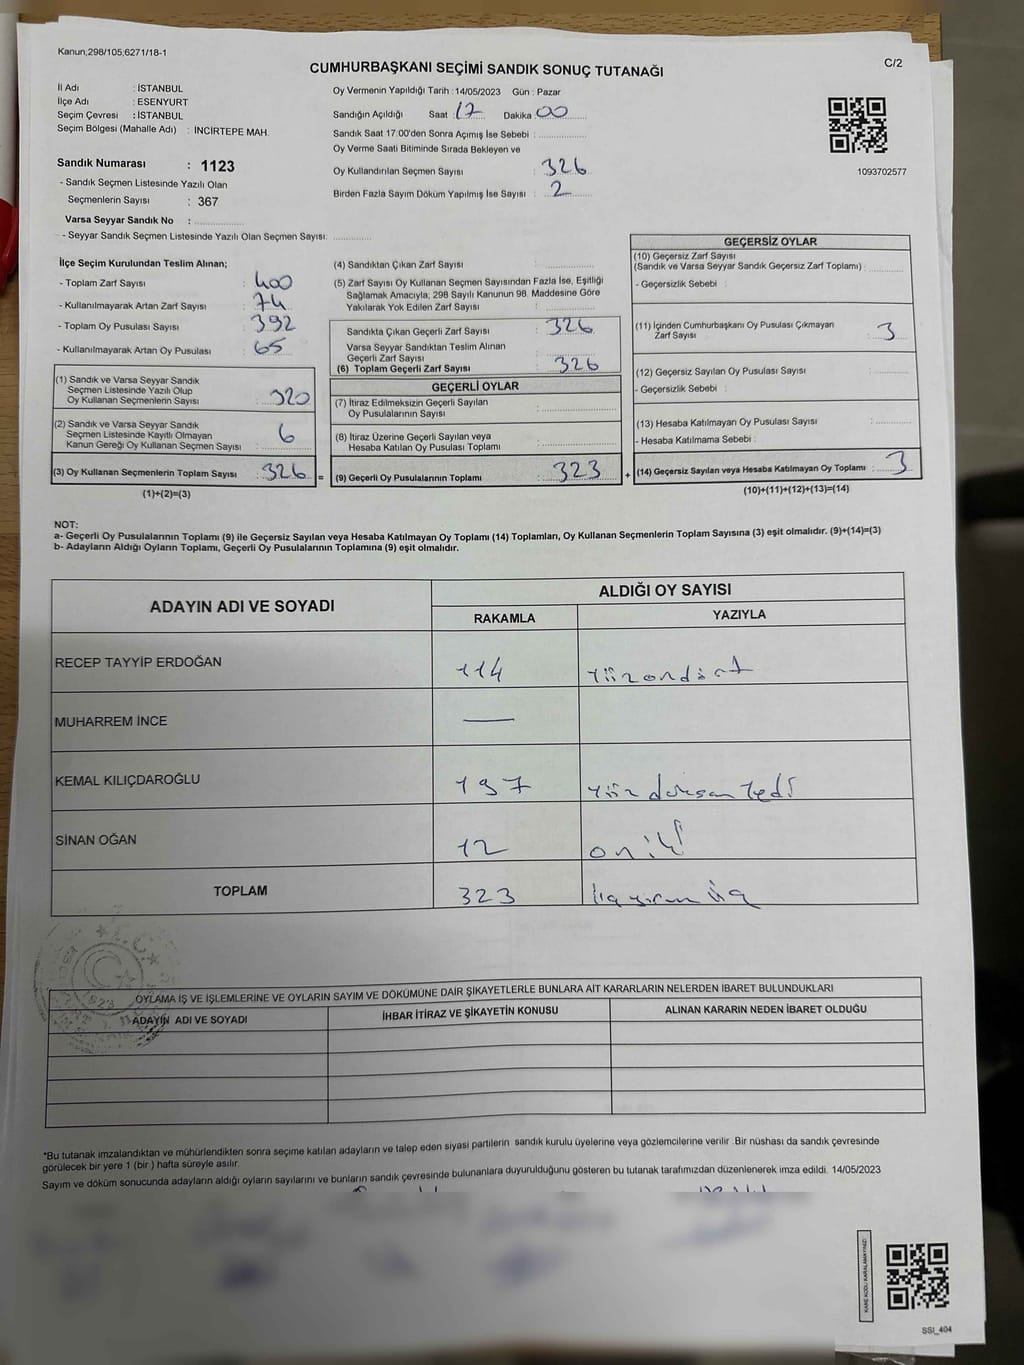 Kanun,298/105,6271/18-1
C/2
CUMHURBAŞKANI SEÇİMİ SANDIK SONUÇ TUTANAĞI
İl Adı : İSTANBUL
İlçe Adı : ESENYURT
Seçim Çevresi : İSTANBUL
Seçim Bölgesi (Mahalle Adı) : İNCİRTEPE MAH.
Sandık Numarası : 1123
- Sandık Seçmen Listesinde Yazılı Olan
Seçmenlerin Sayısı : 367
Varsa Seyyar Sandık No :
- Seyyar Sandık Seçmen Listesinde Yazılı Olan Seçmen Sayısı:
Oy Vermenin Yapıldığı Tarih : 14/05/2023 Gün : Pazar
Sandığın Açıldığı Saat : 17 Dakika : 00
Sandık Saat 17:00'den Sonra Açımış İse Sebebi :
Oy Verme Saati Bitiminde Sırada Bekleyen ve
Oy Kullandırılan Seçmen Sayısı : 326
Birden Fazla Sayım Döküm Yapılmış İse Sayısı : 2
1093702577
İlçe Seçim Kurulundan Teslim Alınan;
- Toplam Zarf Sayısı : 400
- Kullanılmayarak Artan Zarf Sayısı : 74
- Toplam Oy Pusulası Sayısı : 392
- Kullanılmayarak Artan Oy Pusulası : 65
(1) Sandık ve Varsa Seyyar Sandık
Seçmen Listesinde Yazılı Olup
Oy Kullanan Seçmenlerin Sayısı : 320
(2) Sandık ve Varsa Seyyar Sandık
Seçmen Listesinde Kayıtlı Olmayan
Kanun Gereği Oy Kullanan Seçmen Sayısı : 6
(3) Oy Kullanan Seçmenlerin Toplam Sayısı : 326 =
(1)+(2)=(3)
(4) Sandıktan Çıkan Zarf Sayısı :
(5) Zarf Sayısı Oy Kullanan Seçmen Sayısından Fazla İse, Eşitliği
Sağlamak Amacıyla; 298 Sayılı Kanunun 98. Maddesine Göre
Yakılarak Yok Edilen Zarf Sayısı :
Sandıkta Çıkan Geçerli Zarf Sayısı : 326
Varsa Seyyar Sandıktan Teslim Alınan
Geçerli Zarf Sayısı :
(6) Toplam Geçerli Zarf Sayısı : 326
GEÇERLİ OYLAR
(7) İtiraz Edilmeksizin Geçerli Sayılan
Oy Pusulalarının Sayısı :
(8) İtiraz Üzerine Geçerli Sayılan veya
Hesaba Katılan Oy Pusulası Toplamı :
(9) Geçerli Oy Pusulalarının Toplamı : 323 +
GEÇERSİZ OYLAR
(10) Geçersiz Zarf Sayısı
(Sandık ve Varsa Seyyar Sandık Geçersiz Zarf Toplamı) :
- Geçersizlik Sebebi :
(11) İçinden Cumhurbaşkanı Oy Pusulası Çıkmayan
Zarf Sayısı : 3
(12) Geçersiz Sayılan Oy Pusulası Sayısı :
- Geçersizlik Sebebi :
(13) Hesaba Katılmayan Oy Pusulası Sayısı :
- Hesaba Katılmama Sebebi :
(14) Geçersiz Sayılan veya Hesaba Katılmayan Oy Toplamı : 3
(10)+(11)+(12)+(13)=(14)
NOT:
a- Geçerli Oy Pusulalarının Toplamı (9) ile Geçersiz Sayılan veya Hesaba Katılmayan Oy Toplamı (14) Toplamları, Oy Kullanan Seçmenlerin Toplam Sayısına (3) eşit olmalıdır. (9)+(14)=(3)
b- Adayların Aldığı Oyların Toplamı, Geçerli Oy Pusulalarının Toplamına (9) eşit olmalıdır.
ADAYIN ADI VE SOYADI
ALDIĞI OY SAYISI
RAKAMLA YAZIYLA
RECEP TAYYİP ERDOĞAN 114 Yüzondört
MUHARREM İNCE —
KEMAL KILIÇDAROĞLU 197 Yüz doksan Yedi
SİNAN OĞAN 12 on iki
TOPLAM 323
T.C.
1923
OYLAMA İŞ VE İŞLEMLERİNE VE OYLARIN SAYIM VE DÖKÜMÜNE DAİR ŞİKAYETLERLE BUNLARA AİT KARARLARIN NELERDEN İBARET BULUNDUKLARI
ADAYIN ADI VE SOYADI İHBAR İTİRAZ VE ŞİKAYETİN KONUSU ALINAN KARARIN NEDEN İBARET OLDUĞU
*Bu tutanak imzalandıktan ve mühürlendikten sonra seçime katılan adayların ve talep eden siyasi partilerin sandık kurulu üyelerine veya gözlemcilerine verilir .Bir nüshası da sandık çevresinde
görülecek bir yere 1 (bir ) hafta süreyle asılır.
Sayım ve döküm sonucunda adayların aldığı oyların sayılarını ve bunların sandık çevresinde bulunanlara duyurulduğunu gösteren bu tutanak tarafımızdan düzenlenerek imza edildi. 14/05/2023
KARE KODU KARALAMAYINIZ!
SSI_404